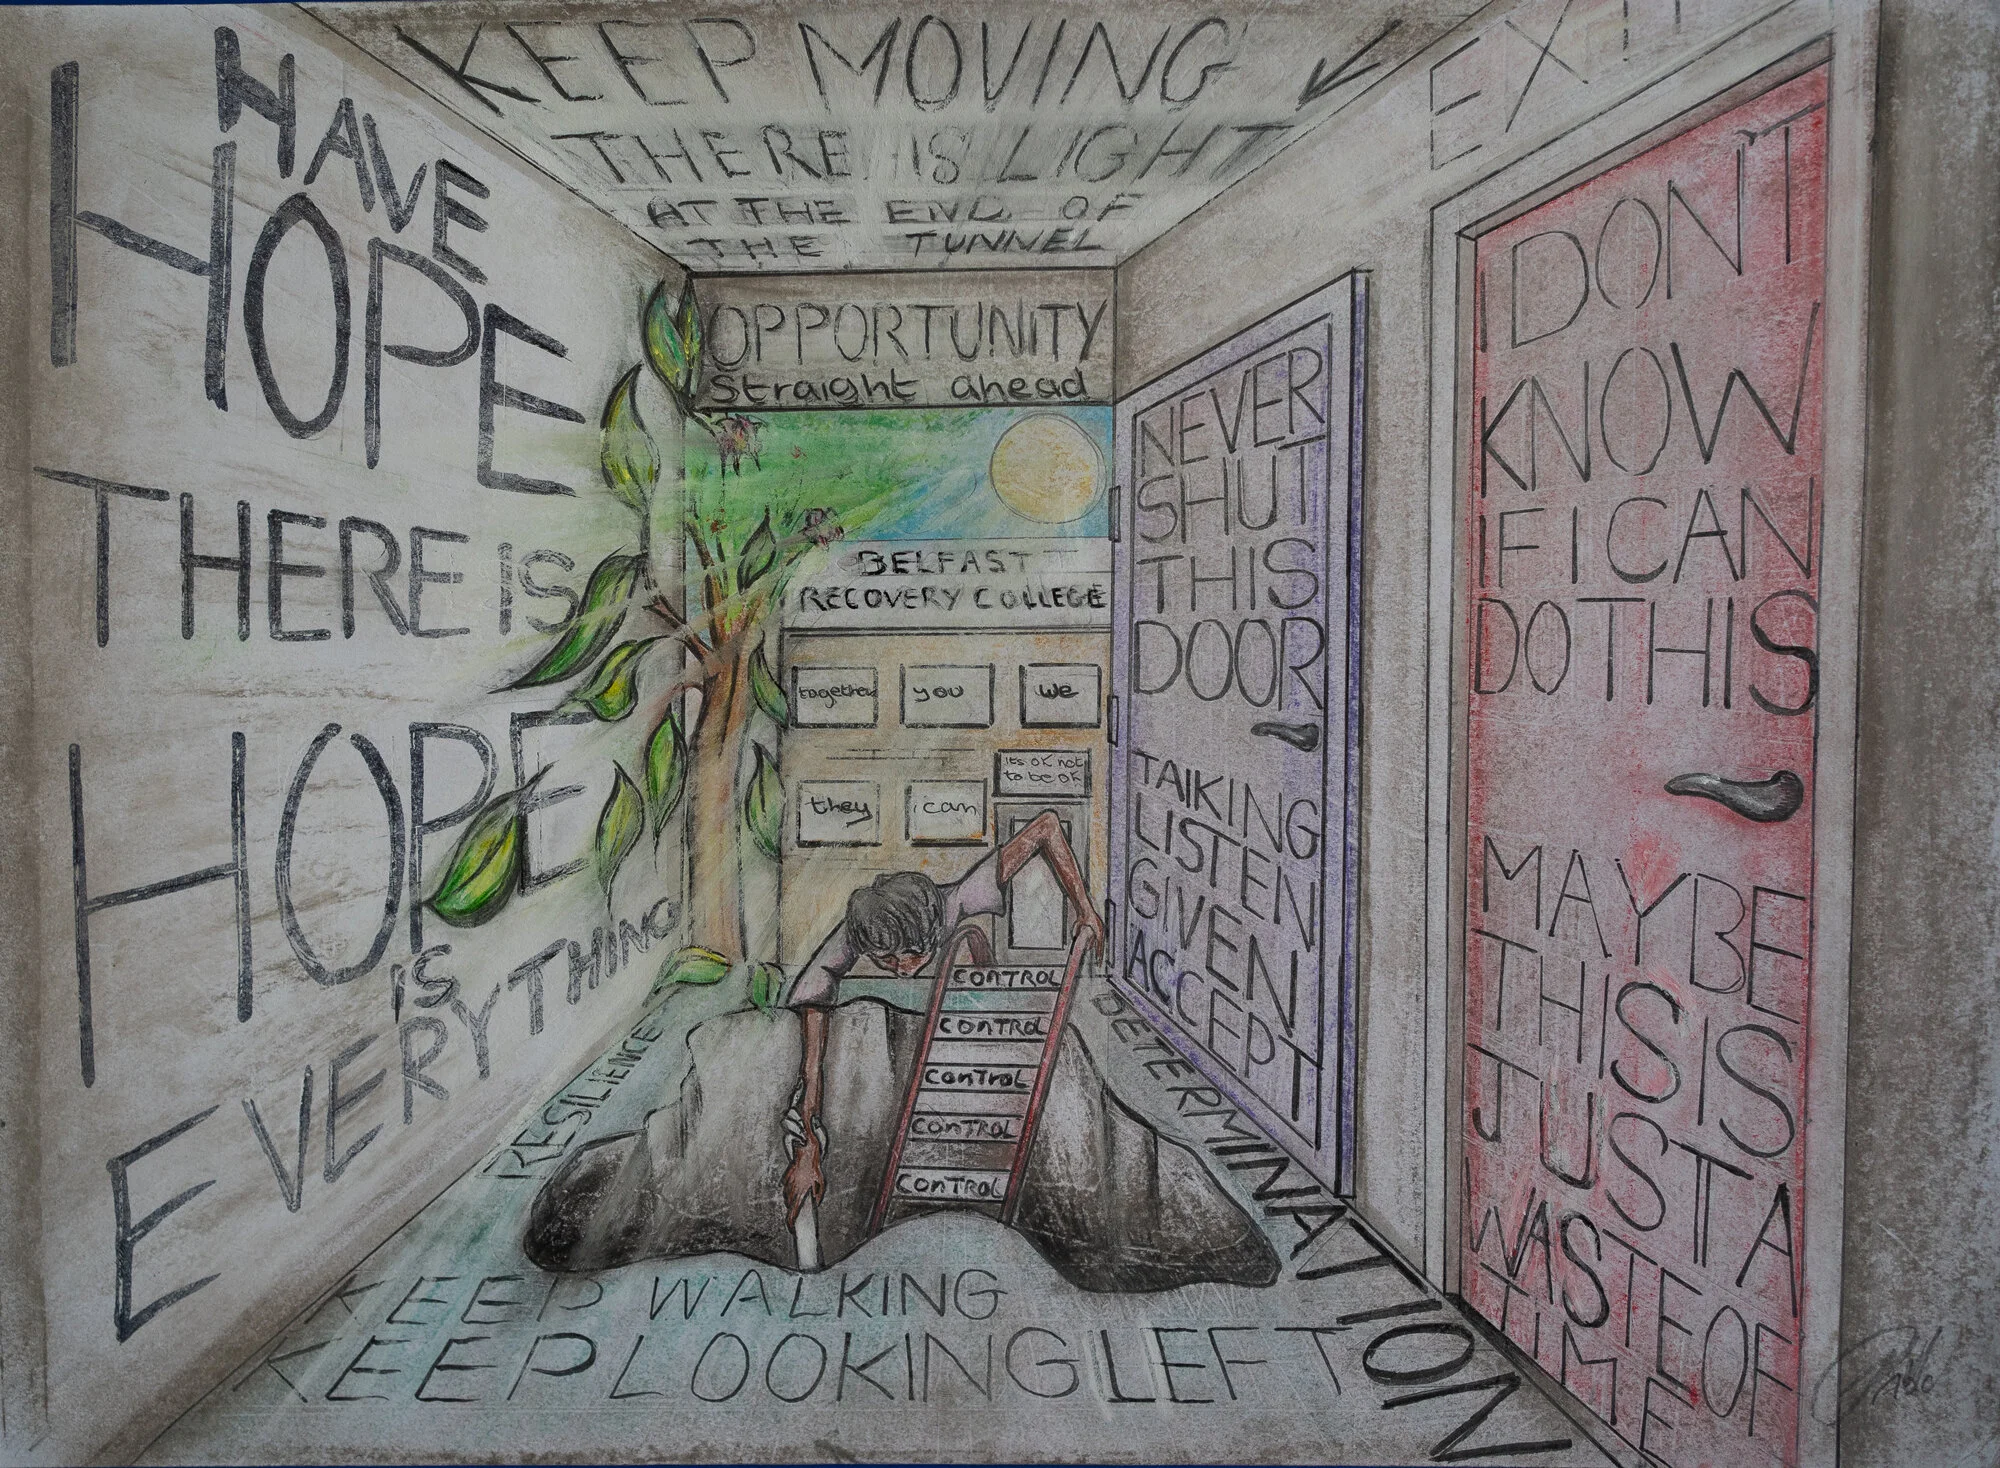 HAVE
HOPE
THERE IS
HOPE
IS
EVERYTHING
KEEP MOVING
THERE IS LIGHT
AT THE END OF
THE TUNNEL
EXIT
OPPORTUNITY
Straight ahead
BELFAST
RECOVERY COLLEGE
together you we
its ok not
to be ok
they i can
CONTROL
CONTROL
CONTROL
CONTROL
CONTROL
RESILIENCE
DETERMINATION
KEEP WALKING
KEEP LOOKING LEFT
NEVER
SHUT
THIS
DOOR
TALKING
LISTEN
GIVEN
ACCEPT
I DON'T
KNOW
IF I CAN
DO THIS
MAYBE
THIS IS
JUST A
WASTE OF
TIME